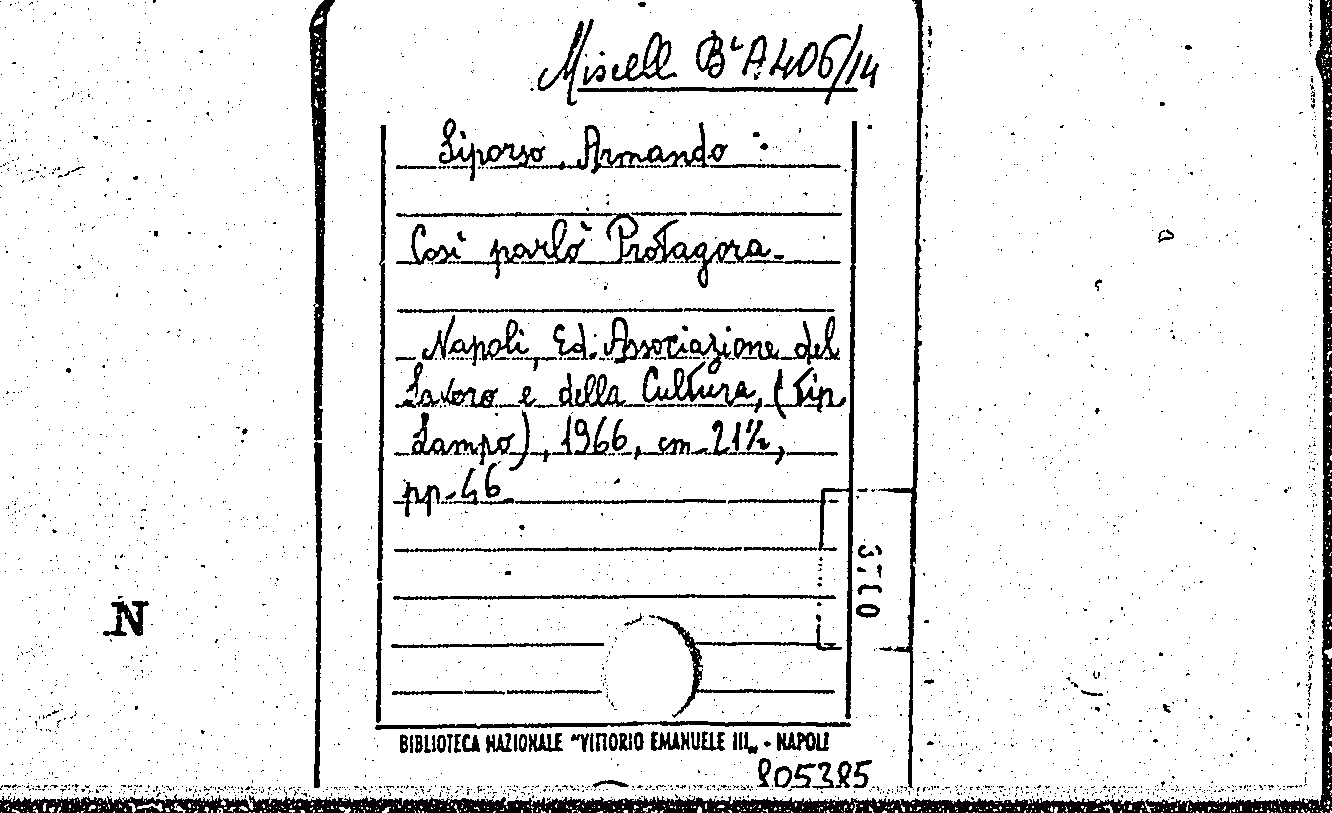 Miscell. Bª A 406/14
Siporso, Armando :
Così parlò Protagora.
Napoli, Ed. Associazione del
Lavoro e della Cultura, (Tip.
Lampo), 1966, cm. 21½,
pp. 46.
N
BIBLIOTECA NAZIONALE "VITTORIO EMANUELE III„ - NAPOLI
805385